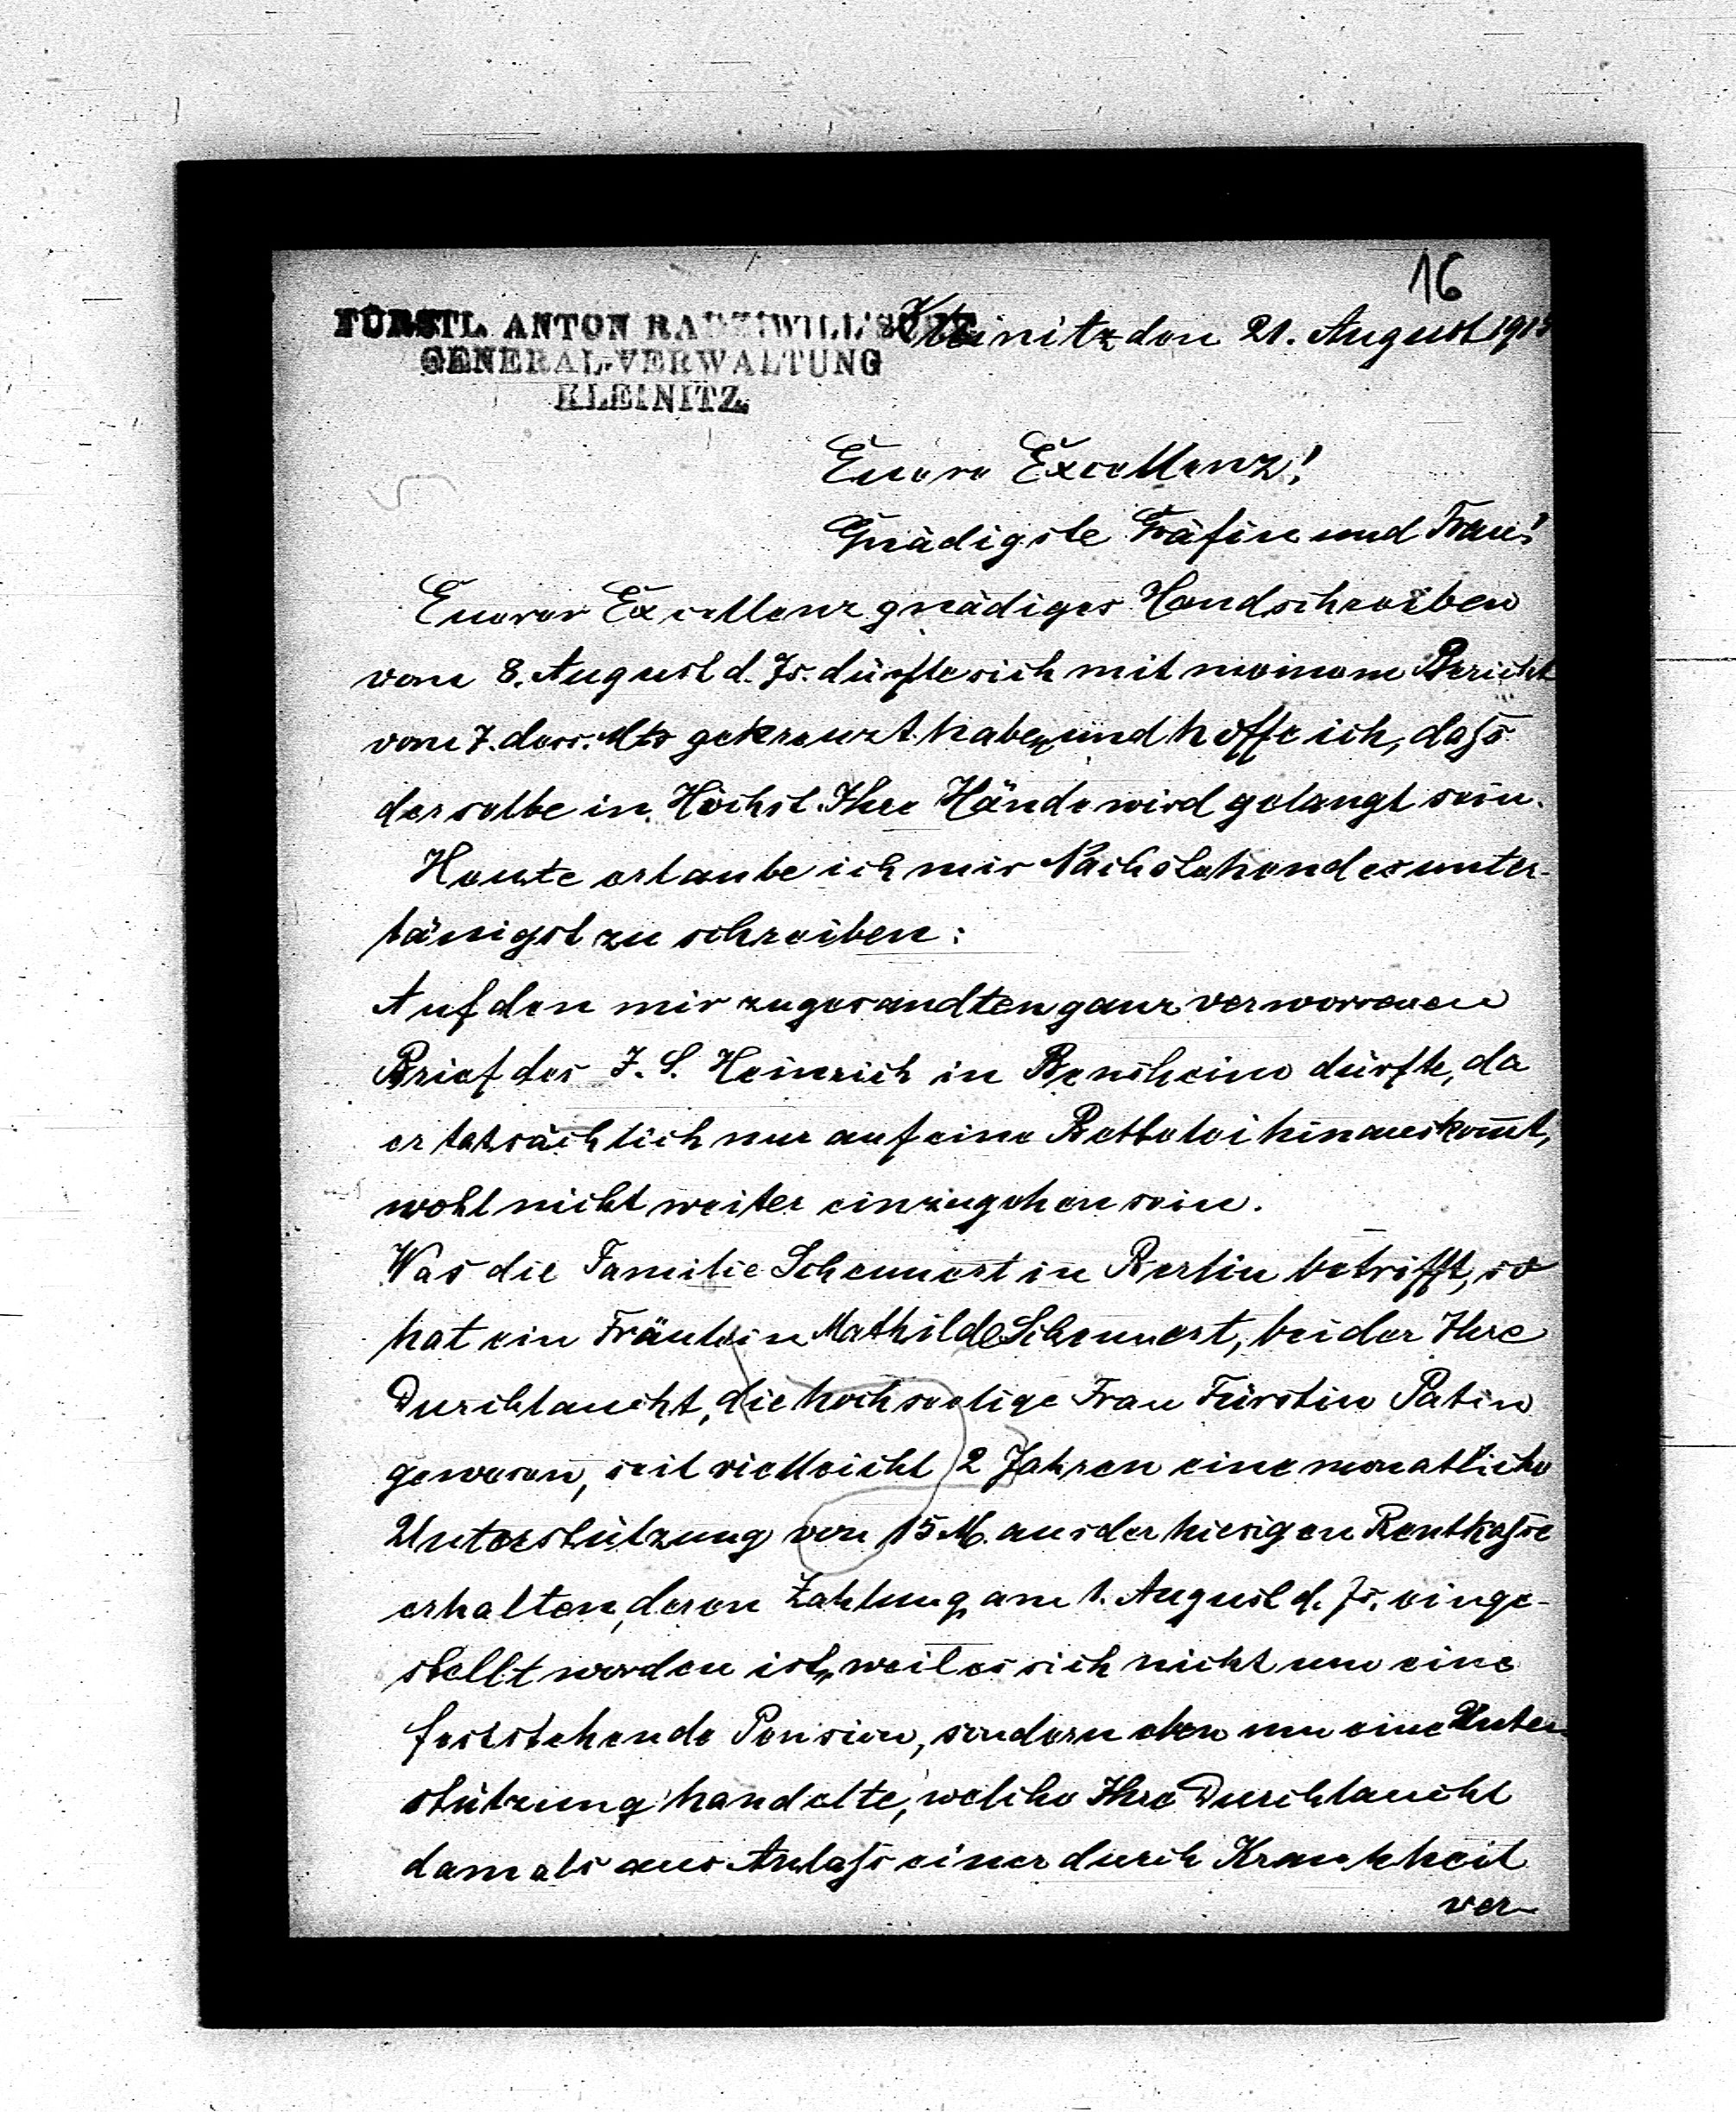 16
FÜRSTL. ANTON RADZIWILL'SCHE
GENERAL-VERWALTUNG
KLEINITZ.
Kleinitz den 21. August
Euere Excellenz!
Gnädigste Gräfin und Frau!
Euerer Excellenz gnädiges Handschreiben
vom 8. August d. Js. dürfte sich mit meinem Bericht
vom 7. dess. Mts gekreuzt haben, und hoffe ich, daſs
derselbe in Höchst Ihre Hände wird gelangt sein.
Heute erlaube ich mir Nachstehendes unter-
tänigst zu schreiben:
Auf den mir zugesandten ganz verworrenen
Brief des J. S. Heinrich in Bensheim dürfte, da
er tatsächlich nur auf eine Bettelei hinauskom̄t,
wohl nicht weiter einzugehen sein.
Was die Familie Scheunert in Berlin betrifft, so
hat ein Fräulein Mathilde Scheunert, bei der Ihre
Durchlaucht, die hochseelige Frau Fürstin Patin
gewesen, seit vielleicht 2 Jahren eine monatliche
Unterstützung von 15 M. aus der hiesigen Rentkaſse
erhalten, deren Zahlung am 1. August d. Js. einge-
stellt worden ist, weil es sich nicht um eine
feststehende Pension, sondern eben um eine Unter-
stützung handelte, welche Ihre Durchlaucht
damals aus Anlaſs einer durch Krankheit
ver-